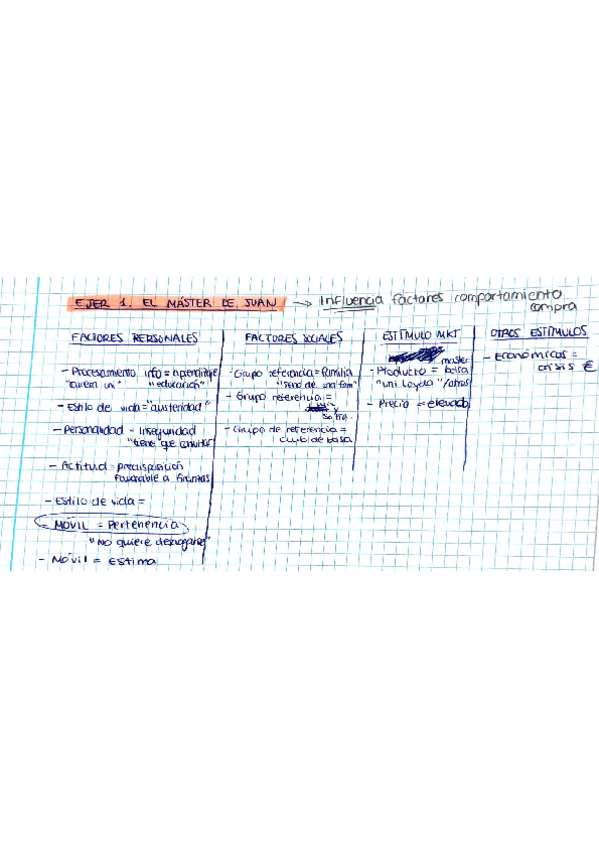 EJER 1. EL MÁSTER DE JUAN → Influencia factores comportamiento
compra
FACTORES PERSONALES
- Procesamiento info = Aprendizaje
"educación"
- Estilo de vida = "austeridad"
- Personalidad - Inseguridad
"tiene que
- Actitud = predisposición
favorable a finanzas
- Estilo de vida =
- MÓVIL = Pertenencia
"No quiere
- Móvil = Estima
FACTORES SOCIALES
- Grupo referencia = familia
- Grupo referencia =
- Grupo de referencia =
club de bolsa
ESTÍMULO MKT
master
- Producto = bolsa
"uni Loyola"/otras
- Precio = elevado
OTROS ESTÍMULOS
- Económicas =
crisis €